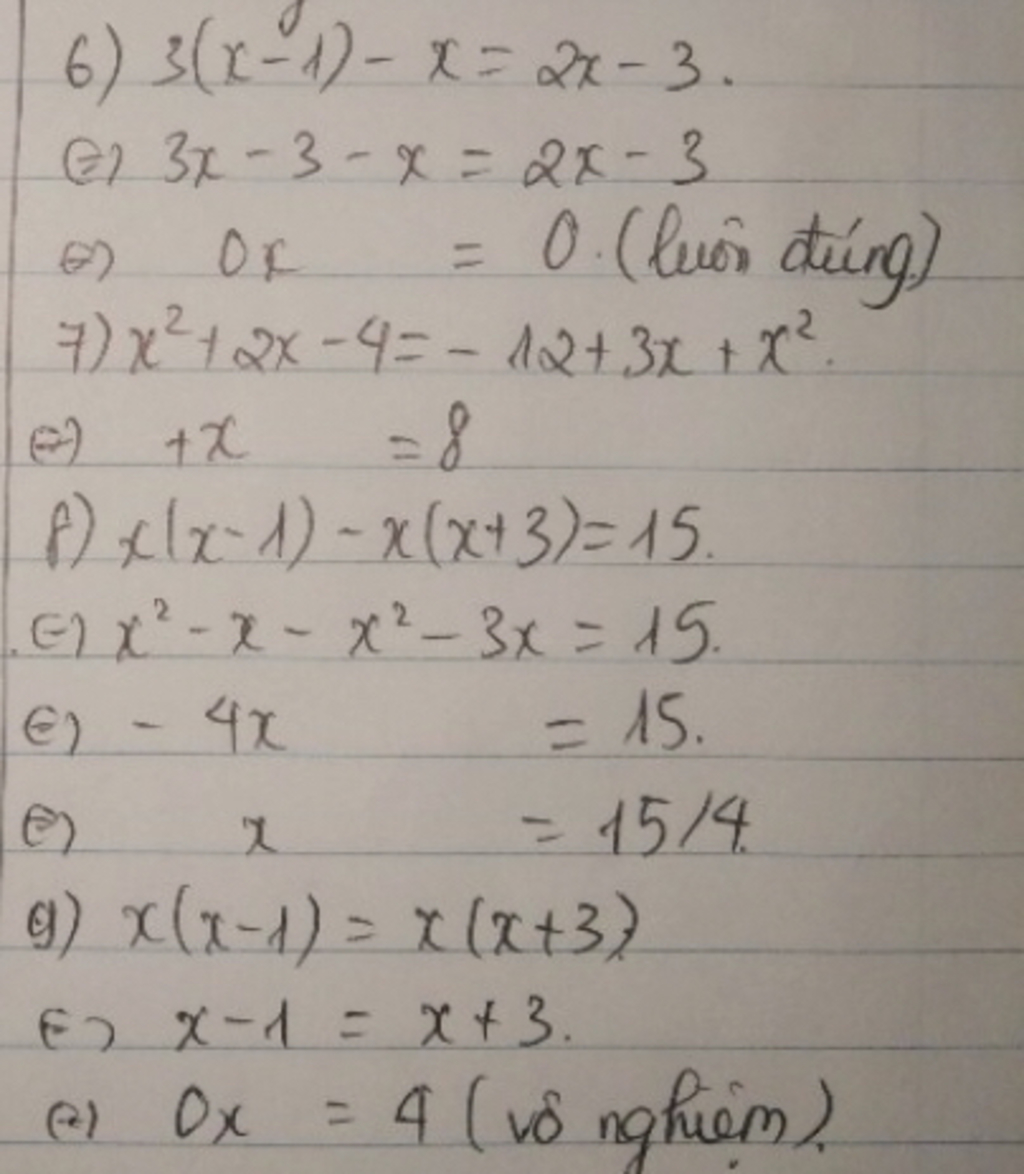 6) 3(x-1) - x = 2x - 3.
⇔ 3x - 3 - x = 2x - 3
⇔ 0x = 0. (luôn đúng)
7) x² + 2x - 4 = - 12 + 3x + x².
⇔ +x = 8
8) x(x-1) - x(x+3) = 15.
⇔ x² - x - x² - 3x = 15.
⇔ - 4x = 15.
⇔ x = 15/4.
9) x(x-1) = x(x+3)
⇔ x-1 = x+3.
⇔ 0x = 4 (vô nghiệm).